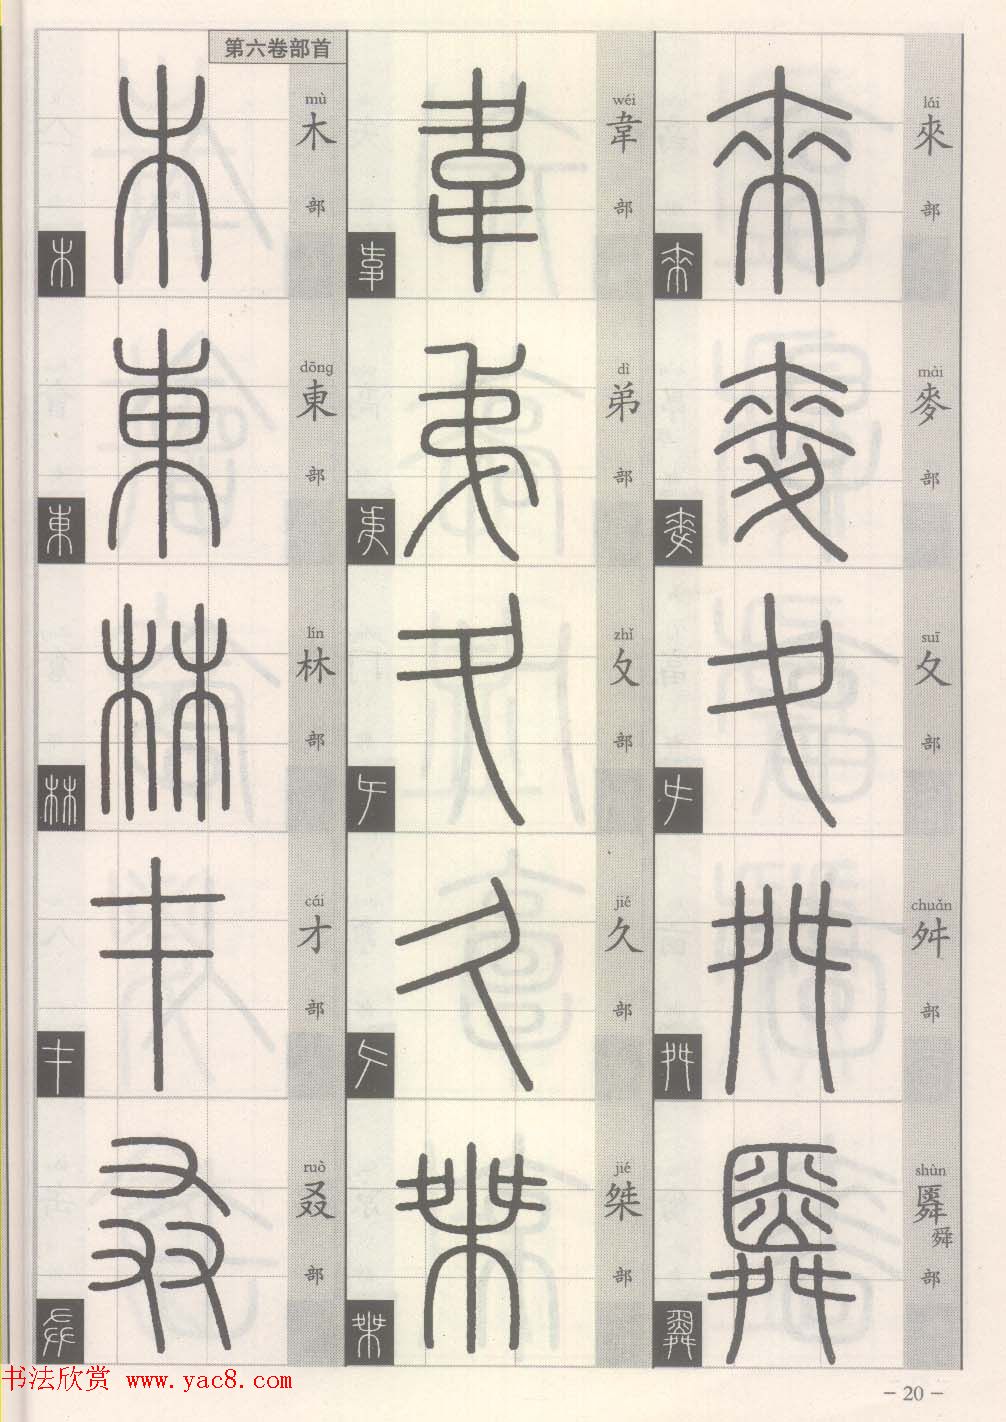 lái
來
部
mài
麥
部
suī
夊
部
chuǎn
舛
部
shùn
舜
部
wéi
韋
部
dì
弟
部
zhǐ
夂
部
jié
久
部
jié
桀
部
第六卷部首
mù
木
部
dōng
東
部
lín
林
部
cái
才
部
ruò
叒
部
书法欣赏 www.yac8.com
- 20 -